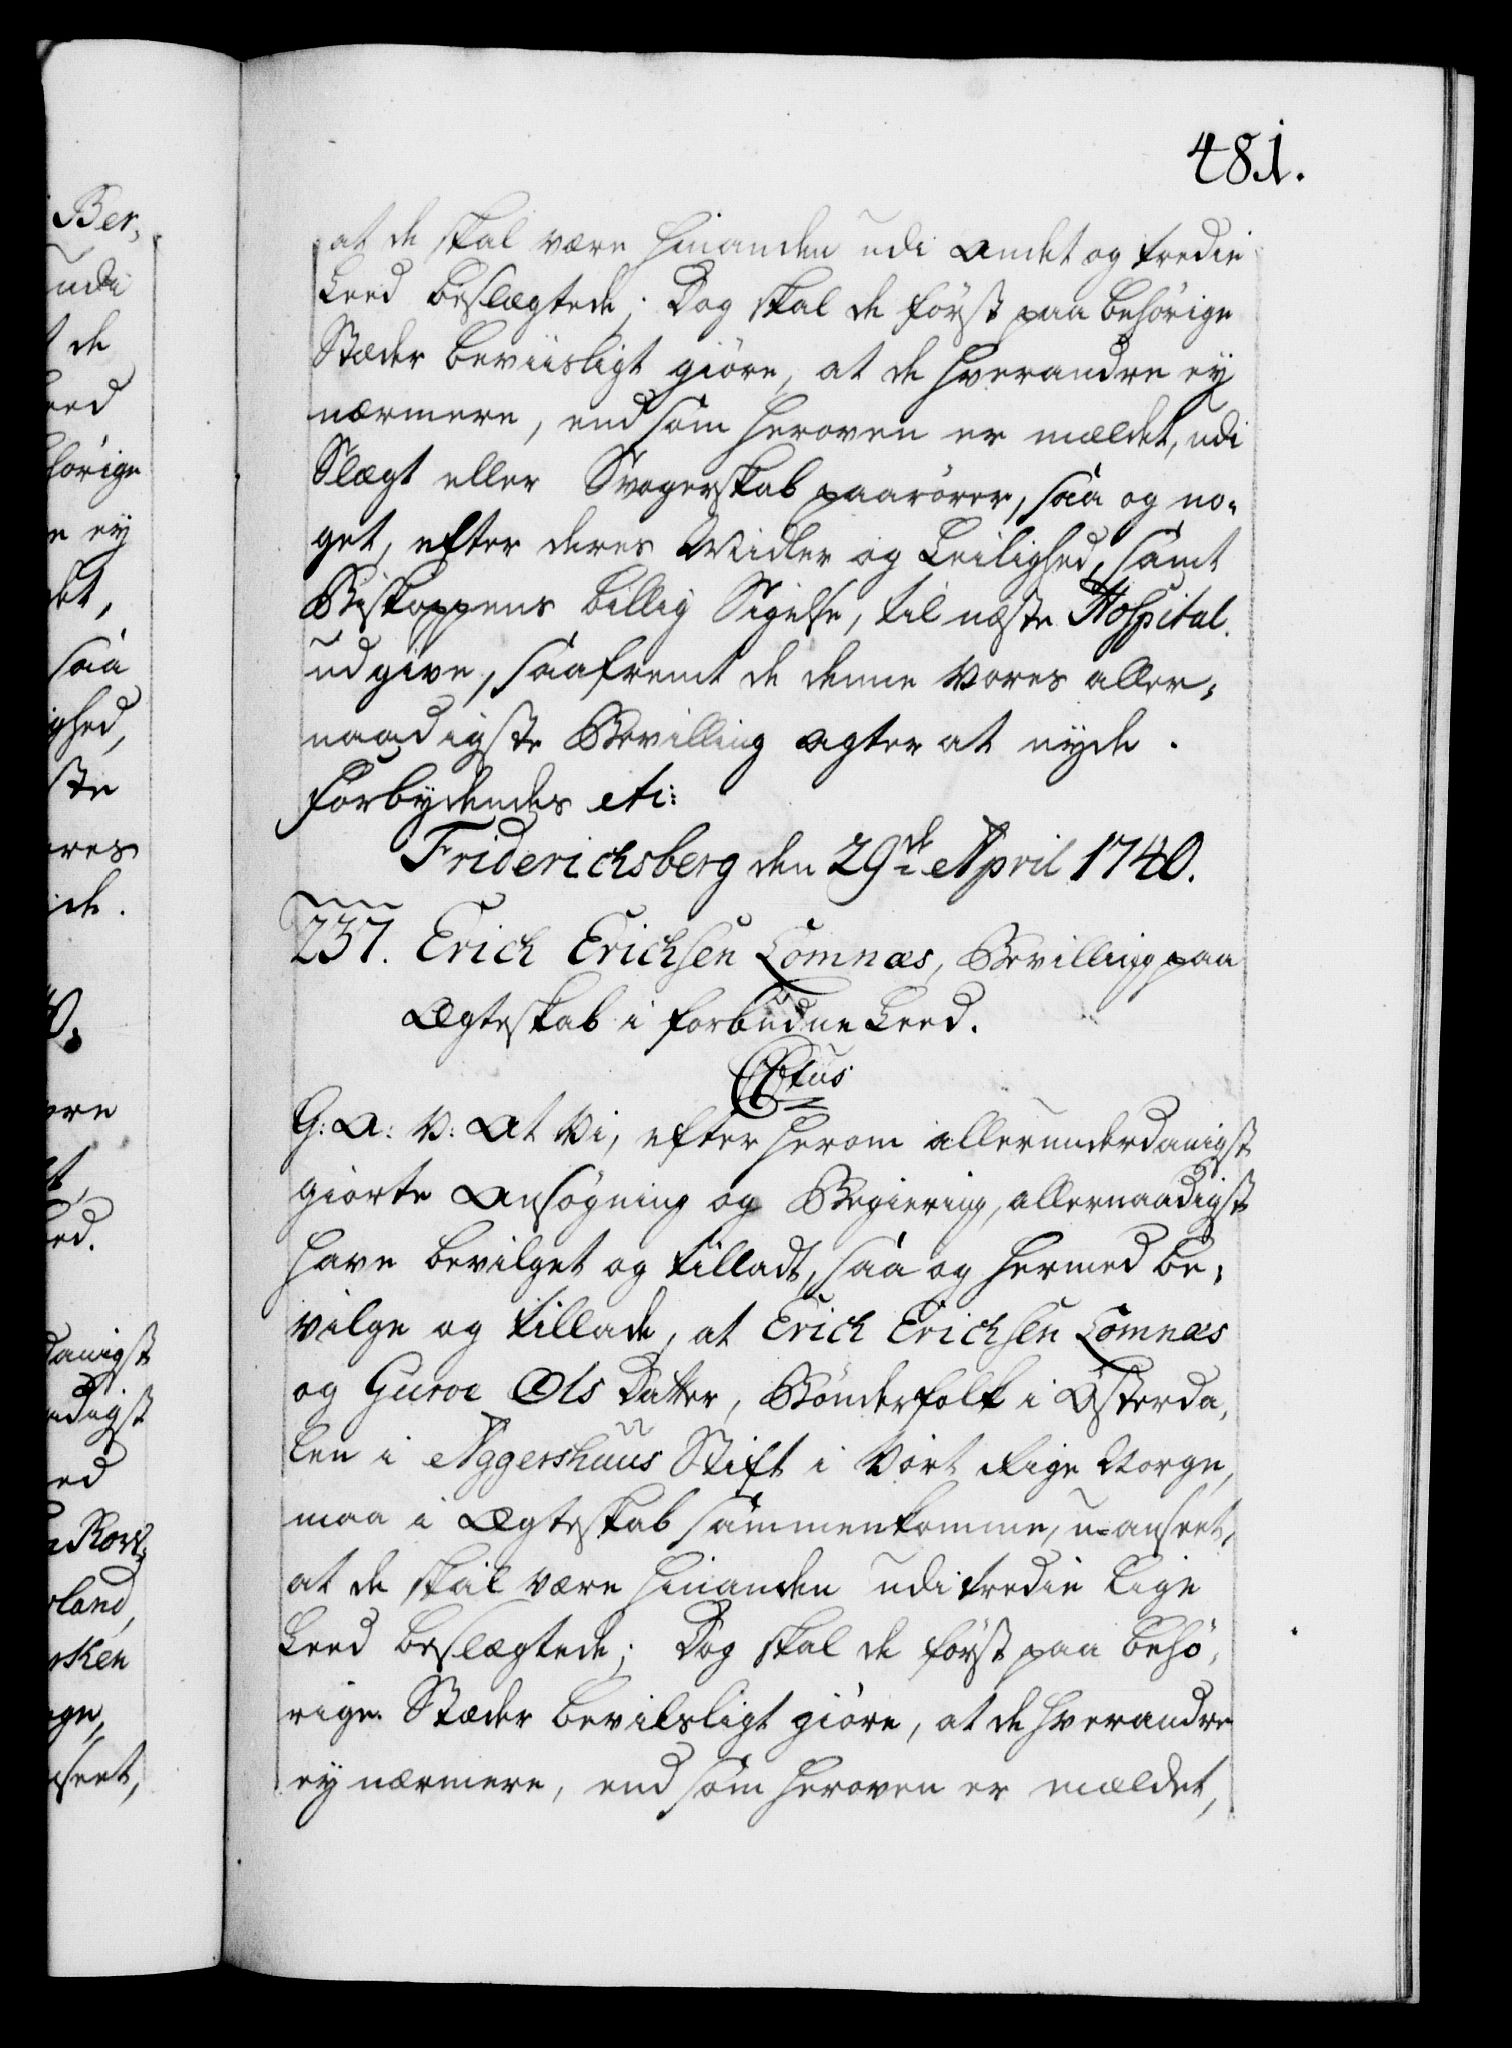 481.
at de skal være hinanden udi andet og tredie
Leed beslægtede; Dog skal de først paa behörige
Stæder beviisligt giöre, at de hverandre ey
nærmere, end som heroven er mældet, udi
Slægt eller Svogerskab paarörer, saa og no-
get, efter deres Midler og Leilighed, samt
Biskoppens billig Sigelse, til næste Hospital
udgive, saafremt de denne Vores aller-
naadigste Bevilling agter at nyde.
Forbydendes etc:
Friderichsberg den 29de April 1740.
237. Erich Erichsen Lomnæs, Bevilling paa
Ægteskab i forbudne Leed.
Ctus
G: A: V: At Vi, efter herom allerunderdanigst
giorte Ansögning og Begiering, allernaadigst
have bevilget og tilladt, saa og hermed be-
vilge og tillade, at Erich Erichsen Lomnæs
og Guroe Ols Datter, Bönderfolk i Österda-
len i Aggershuus Stift i Vort Rige Norge,
maa i Ægteskab sammenkomme, u-anseet,
at de skal være hinanden udi tredie lige
Leed beslægtede; Dog skal de først paa behö-
rige Stæder beviisligt giöre, at de hverandre
ey nærmere, end som heroven er mældet,